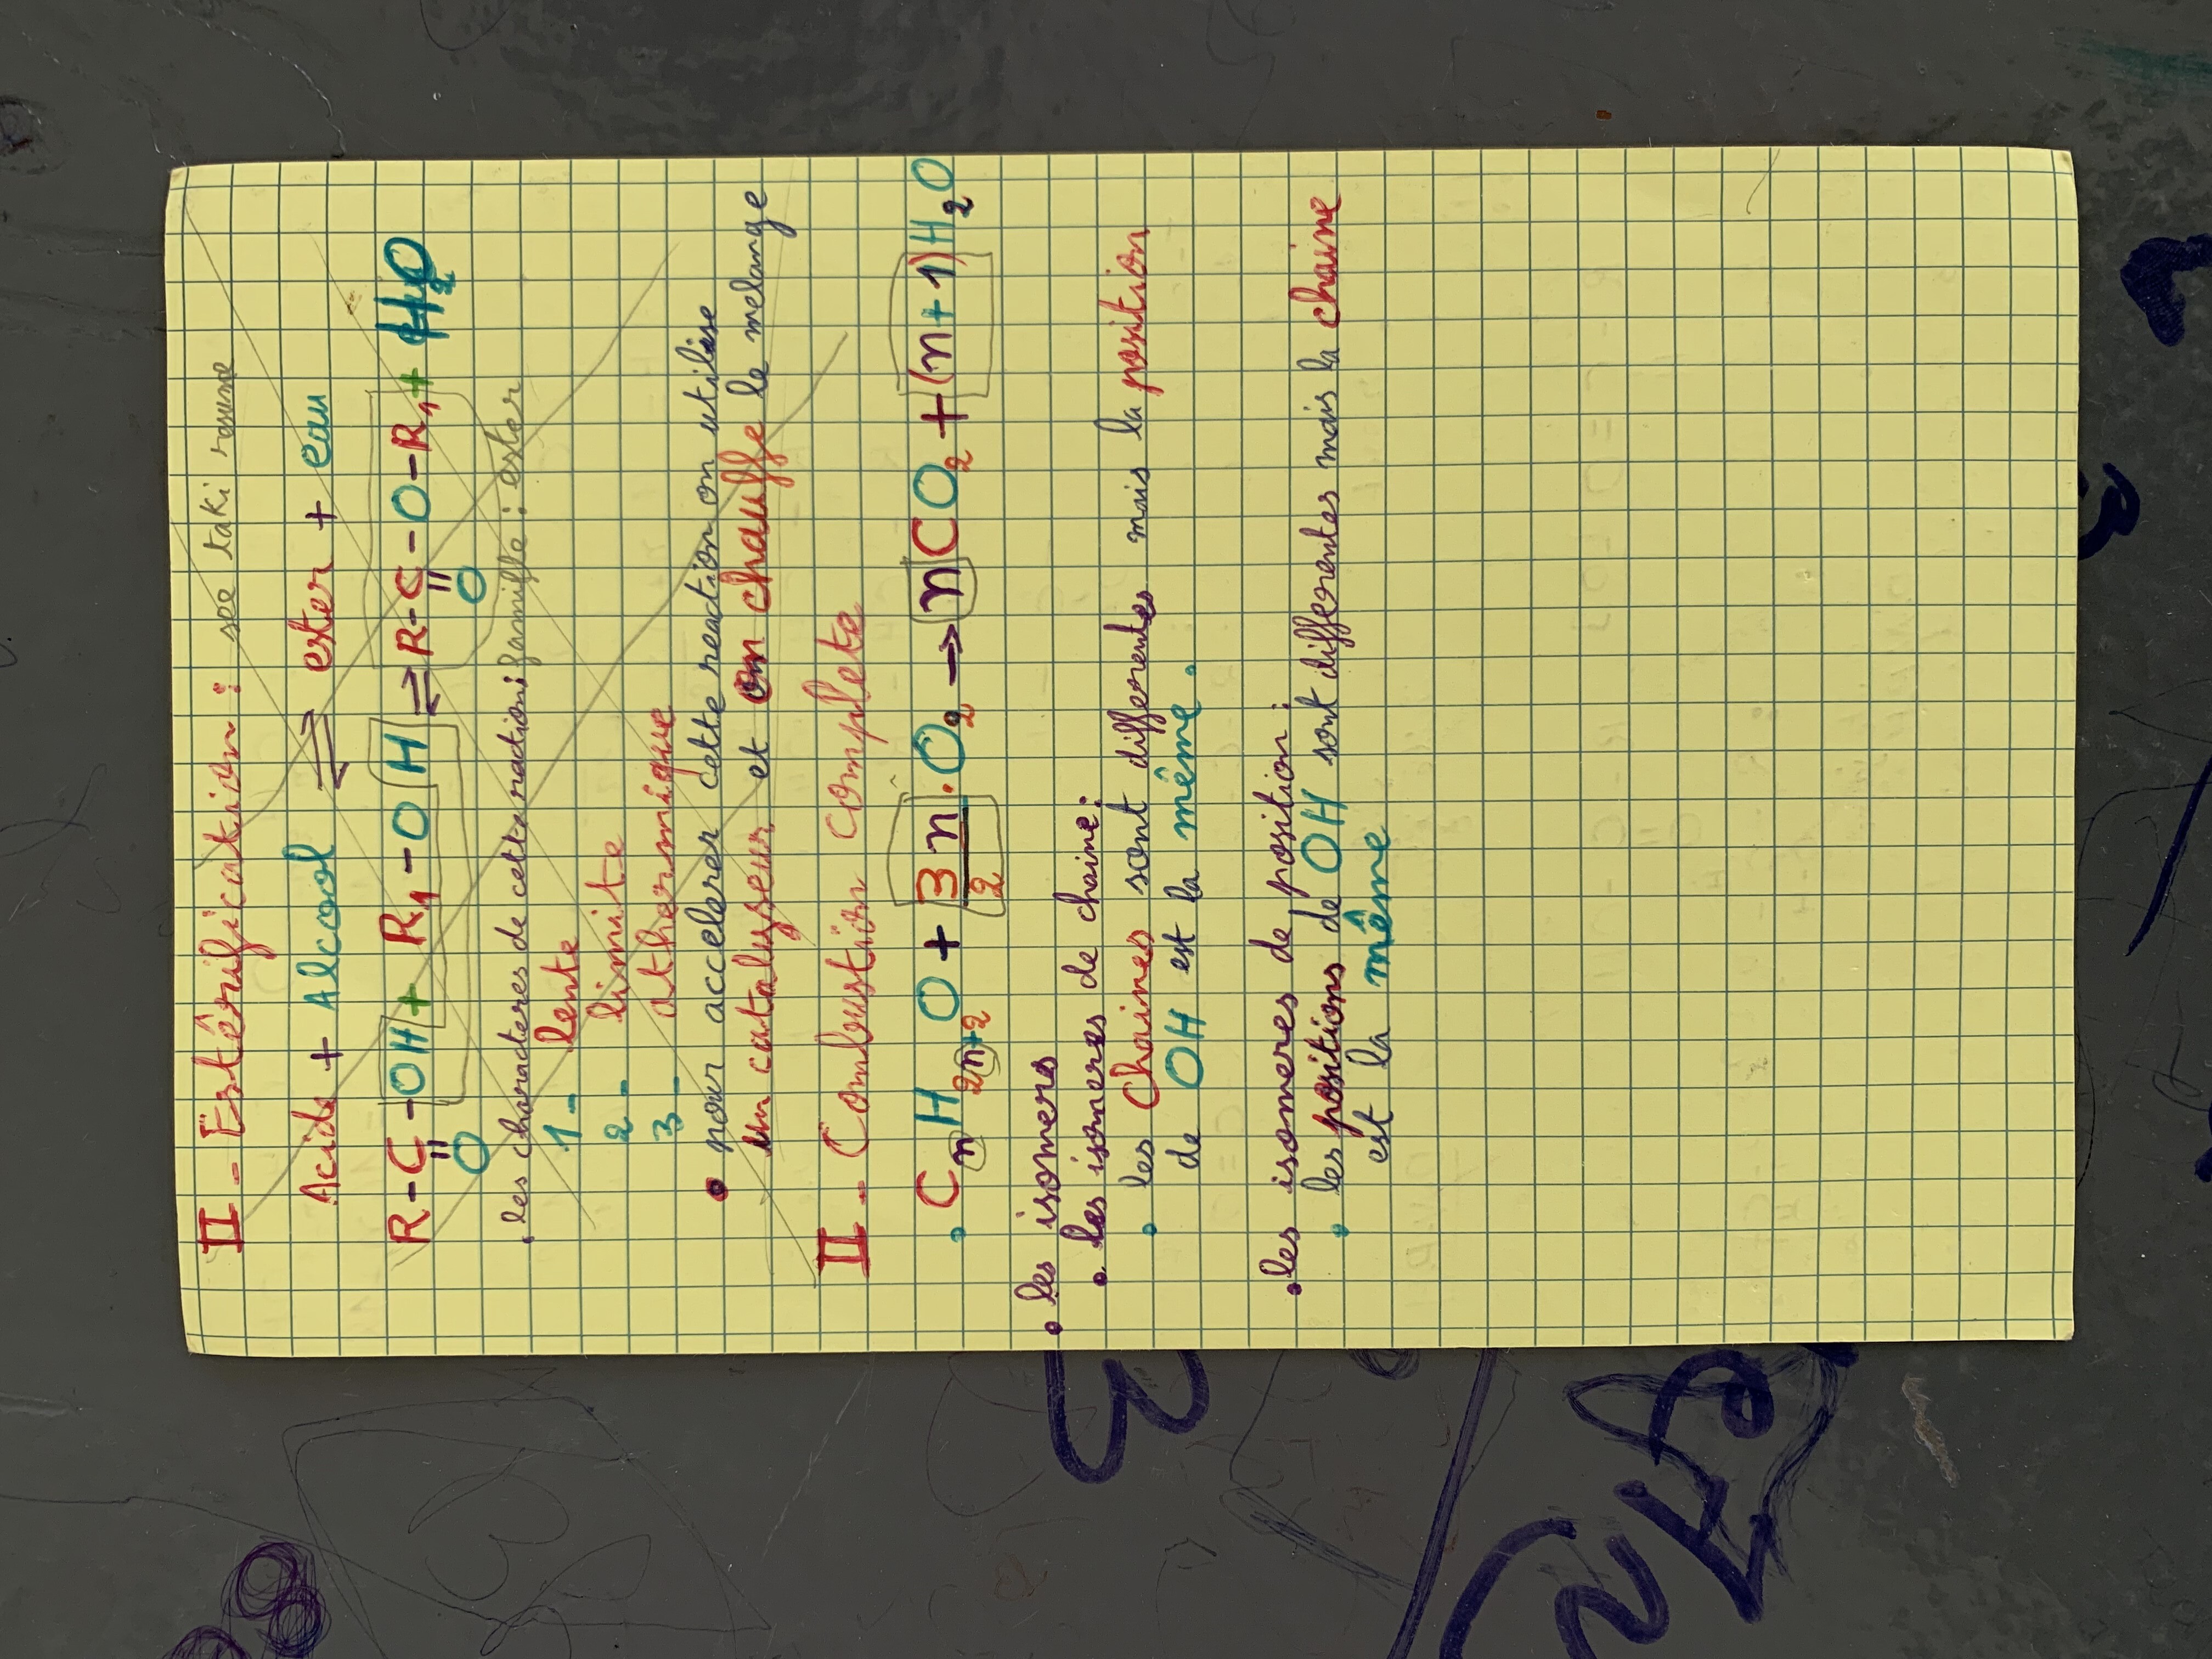 II - Estêrification : see taki resume
Acide + Alcool ⇌ ester + eau
R-C-OH + R₁-OH ⇌ R-C-O-R₁ + H₂O
= =
O O
. les characteres de cette raction : famille : ester
1- lente
2- limite
3- athermique
• pour accelerer cette reaction on utilise
un catalyseur et on chauffe le melange
II - Combustion Complete
. CₙH₂ₙ₊₂O + 3n/2 . O₂ → nCO₂ + (n+1)H₂O
. les isomers
. les isomeres de chaine :
. les chaines sont differentes mais la position
de OH est la même .
. les isomeres de position :
. les positions de OH sont differentes mais la chaine
est la même